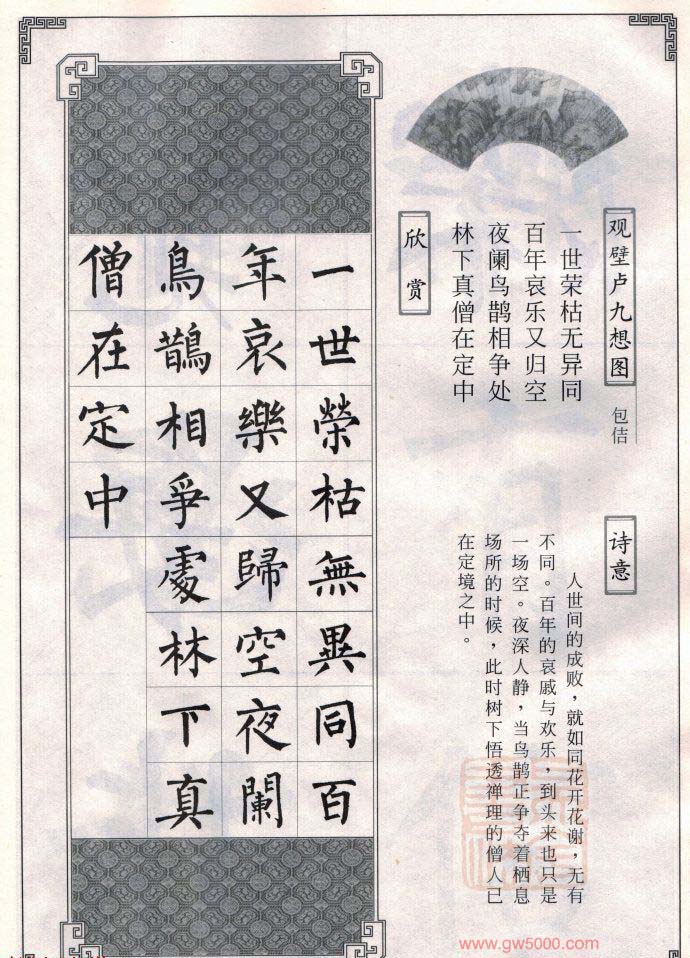 观壁卢九想图
包佶
一世荣枯无异同
百年哀乐又归空
夜阑鸟鹊相争处
林下真僧在定中
欣赏
诗意
人世间的成败，就如同花开花谢，无有
不同。百年的哀戚与欢乐，到头来也只是
一场空。夜深人静，当鸟鹊正争夺着栖息
场所的时候，此时树下悟透禅理的僧人已
在定境之中。
一世榮枯無異同百
年哀樂又歸空夜闌
鳥鵲相爭處林下真
僧在定中
www.gw5000.com